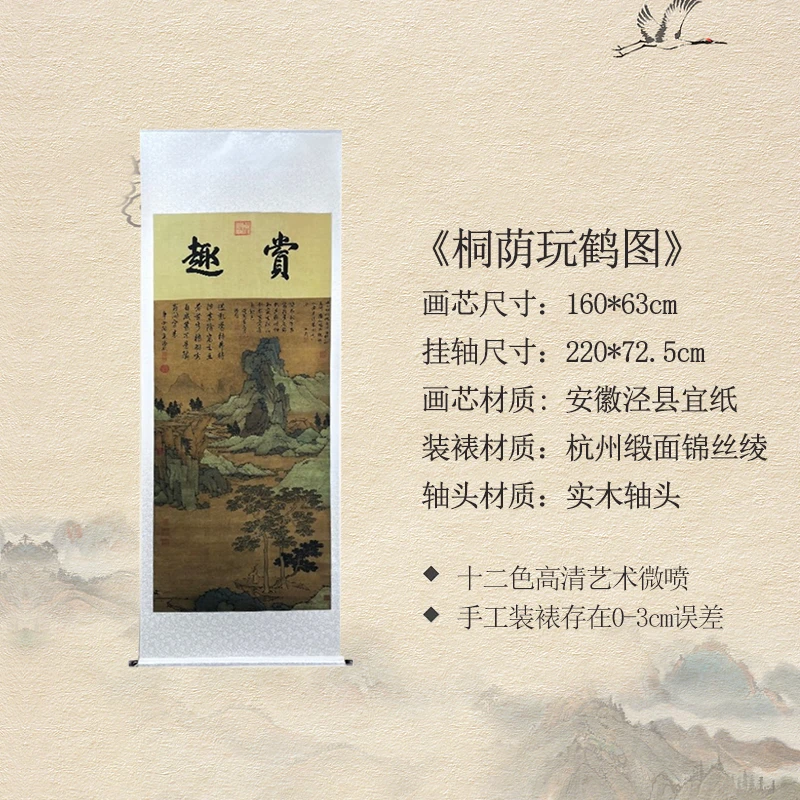 趣 賞
《桐荫玩鹤图》
画芯尺寸：160*63cm
挂轴尺寸：220*72.5cm
画芯材质：安徽泾县宜纸
装裱材质：杭州缎面锦丝绫
轴头材质：实木轴头
十二色高清艺术微喷
手工装裱存在0-3cm误差